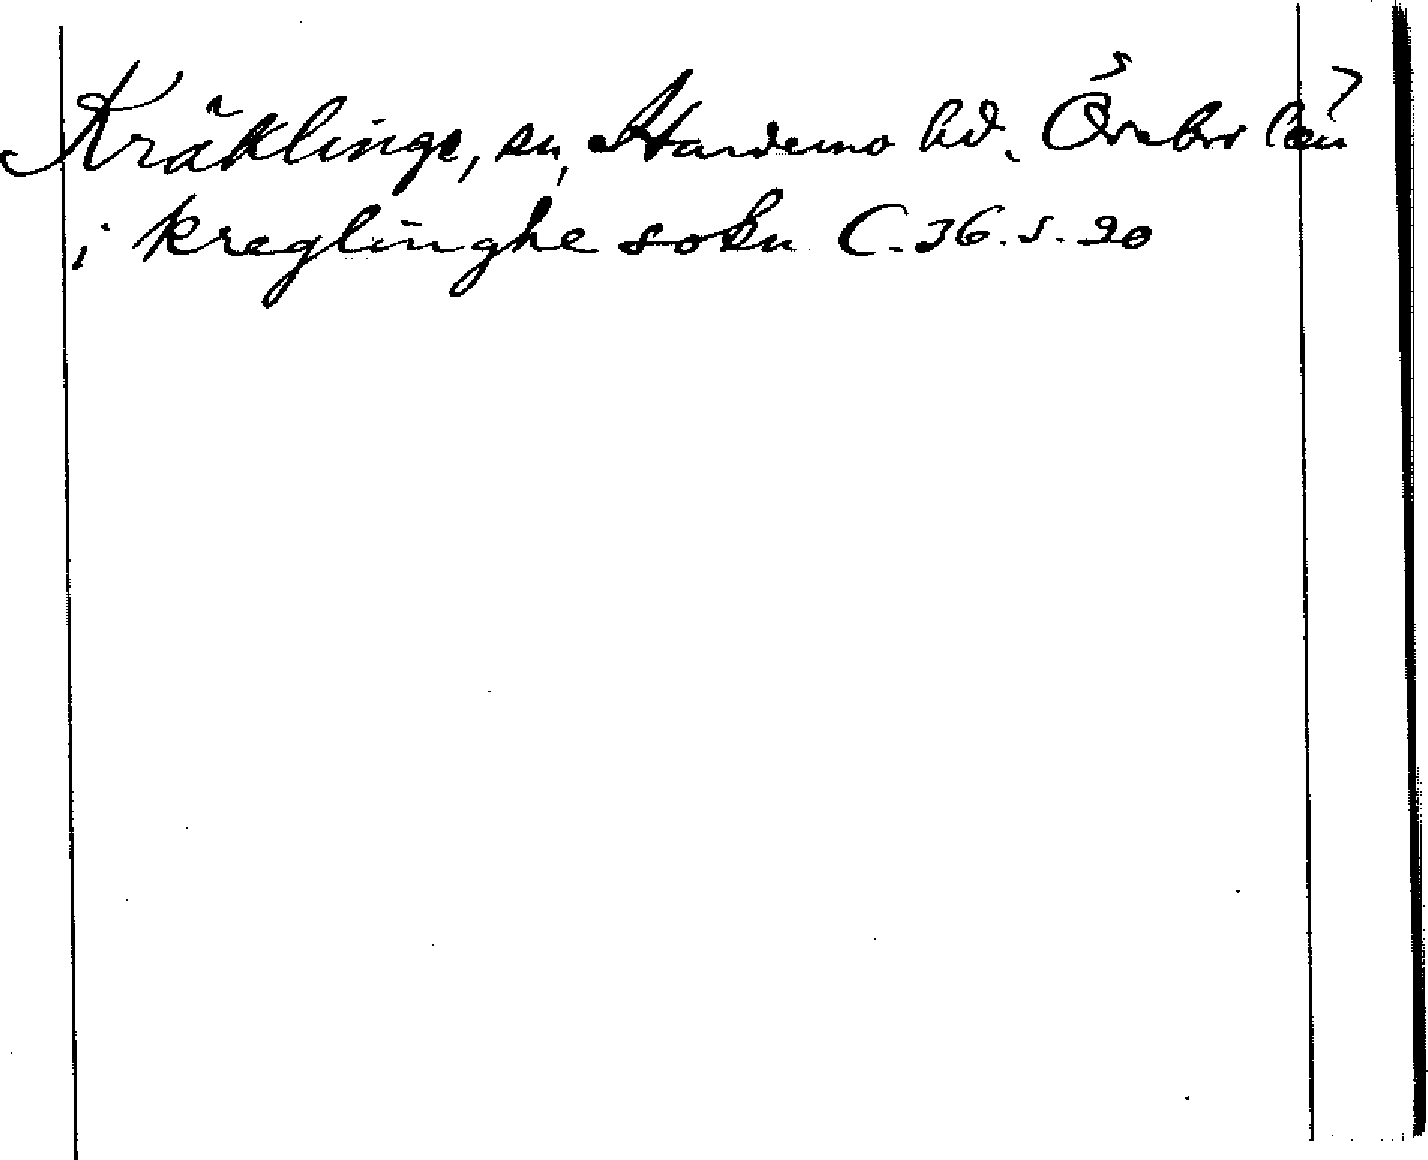 Kräklinge, sn, Hardemo hd. Örebro län
i kreglinghe sokn C. 36. s. 20